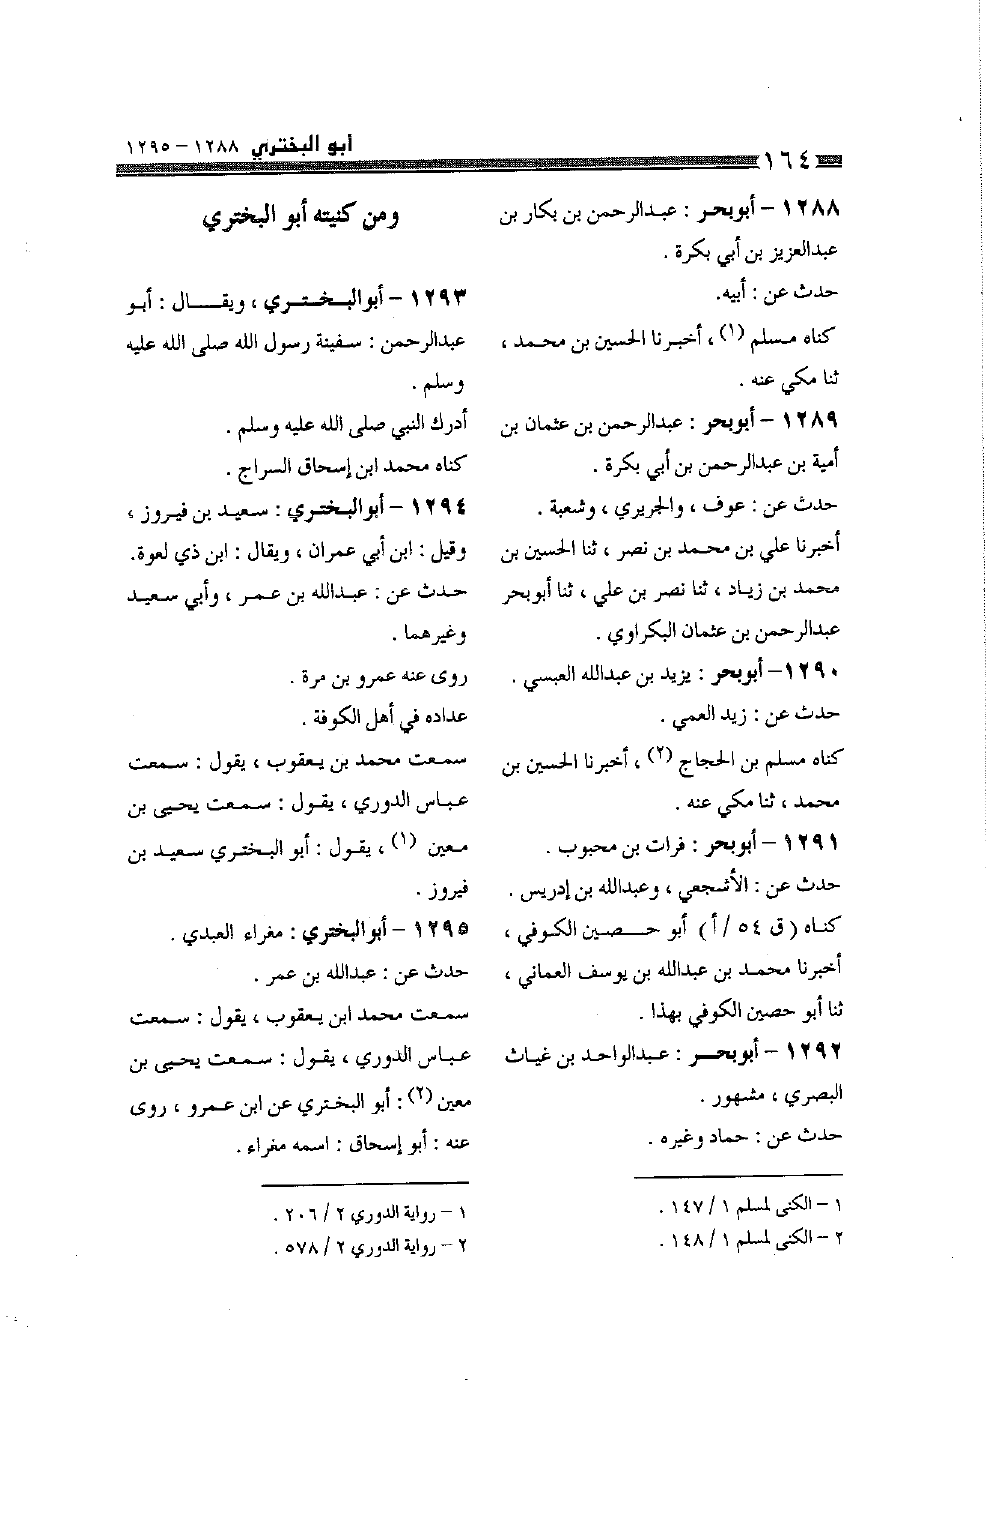 أبو البختري ١٢٨٨ - ١٢٩٥
١٦٤
١٢٨٨ - أبوبحر : عبدالرحمن بن بكار بن
عبدالعزيز بن أبي بكرة .
حدث عن : أبيه.
كناه مسلم (١) ، أخبرنا الحسين بن محمد ،
ثنا مكي عنه .
١٢٨٩ - أبوبحر : عبدالرحمن بن عثمان بن
أمية بن عبدالرحمن بن أبي بكرة .
حدث عن : عوف ، والجريري ، وشعبة .
أخبرنا علي بن محمد بن نصر ، ثنا الحسين بن
محمد بن زياد ، ثنا نصر بن علي ، ثنا أبوبحر
عبدالرحمن بن عثمان البكراوي .
١٢٩٠- أبوبحر : يزيد بن عبدالله العبسي .
حدث عن : زيد العمي .
كناه مسلم بن الحجاج (٢) ، أخبرنا الحسين بن
محمد ، ثنا مكي عنه .
١٢٩١ - أبوبحر : فرات بن محبوب .
حدث عن : الأشجعي ، وعبدالله بن إدريس .
كناه (ق ٥٤ /أ) أبو حصين الكوفي ،
أخبرنا محمد بن عبدالله بن يوسف العماني ،
ثنا أبو حصين الكوفي بهذا .
١٢٩٢ - أبوبحر : عبدالواحد بن غياث
البصري ، مشهور .
حدث عن : حماد وغيره .
١ - الكنى لمسلم ١ /١٤٧ .
٢ - الكنى لمسلم ١ /١٤٨ .
ومن كنيته أبو البختري
١٢٩٣ - أبوالبختري ، ويقال : أبو
عبدالرحمن : سفينة رسول الله صلى الله عليه
وسلم .
أدرك النبي صلى الله عليه وسلم .
كناه محمد ابن إسحاق السراج .
١٢٩٤ - أبوالبختري : سعيد بن فيروز ،
وقيل : ابن أبي عمران ، ويقال : ابن ذي لعوة.
حدث عن : عبدالله بن عمر ، وأبي سعيد
وغيرهما .
روى عنه عمرو بن مرة .
عداده في أهل الكوفة .
سمعت محمد بن يعقوب ، يقول : سمعت
عباس الدوري ، يقول : سمعت يحيى بن
معين (١) ، يقول : أبو البختري سعيد بن
فيروز .
١٢٩٥ - أبوالبختري : مغراء العبدي .
حدث عن : عبدالله بن عمر .
سمعت محمد ابن يعقوب ، يقول : سمعت
عباس الدوري ، يقول : سمعت يحيى بن
معين (٢) : أبو البختري عن ابن عمرو ، روى
عنه : أبو إسحاق : اسمه مغراء .
١ - رواية الدوري ٢ /٢٠٦ .
٢ - رواية الدوري ٢ /٥٧٨ .